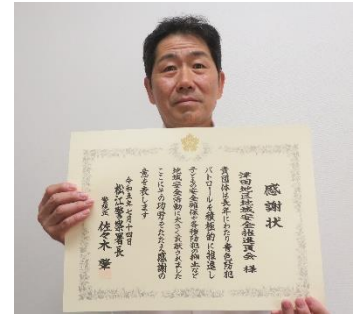 感謝状
津田地区地域安全推進協議会 様
貴団体は長年にわたり青色防犯
パトロールを積極的に推進し
子どもの安全確保や各種防犯の抑止など
地域安全活動に大きく貢献されました
ここにその功労をたたえ感謝の
意を表します
令和五年七月二十四日
松江警察署長
警視正 佐々木 肇